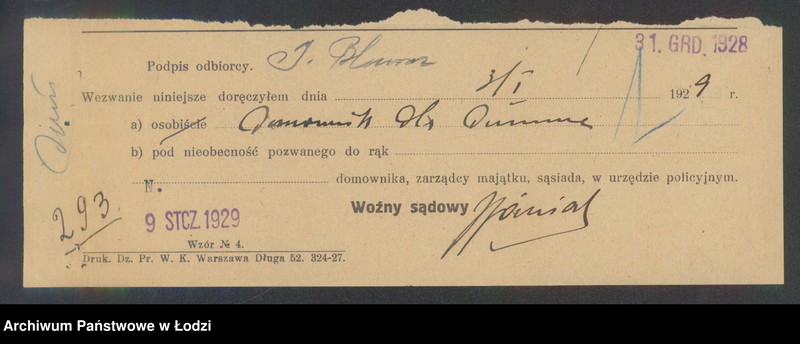 31. GRD. 1928
Podpis odbiorcy.
Wezwanie niniejsze doręczyłem dnia 3/I 1929 r.
a) osobiście
b) pod nieobecność pozwanego do rąk
domownika, zarządcy majątku, sąsiada, w urzędzie policyjnym.
N.
293
9 STCZ. 1929
Woźny sądowy
Wzór № 4.
Druk. Dz. Pr. W. K. Warszawa Długa 52. 324-27.
Archiwum Państwowe w Łodzi